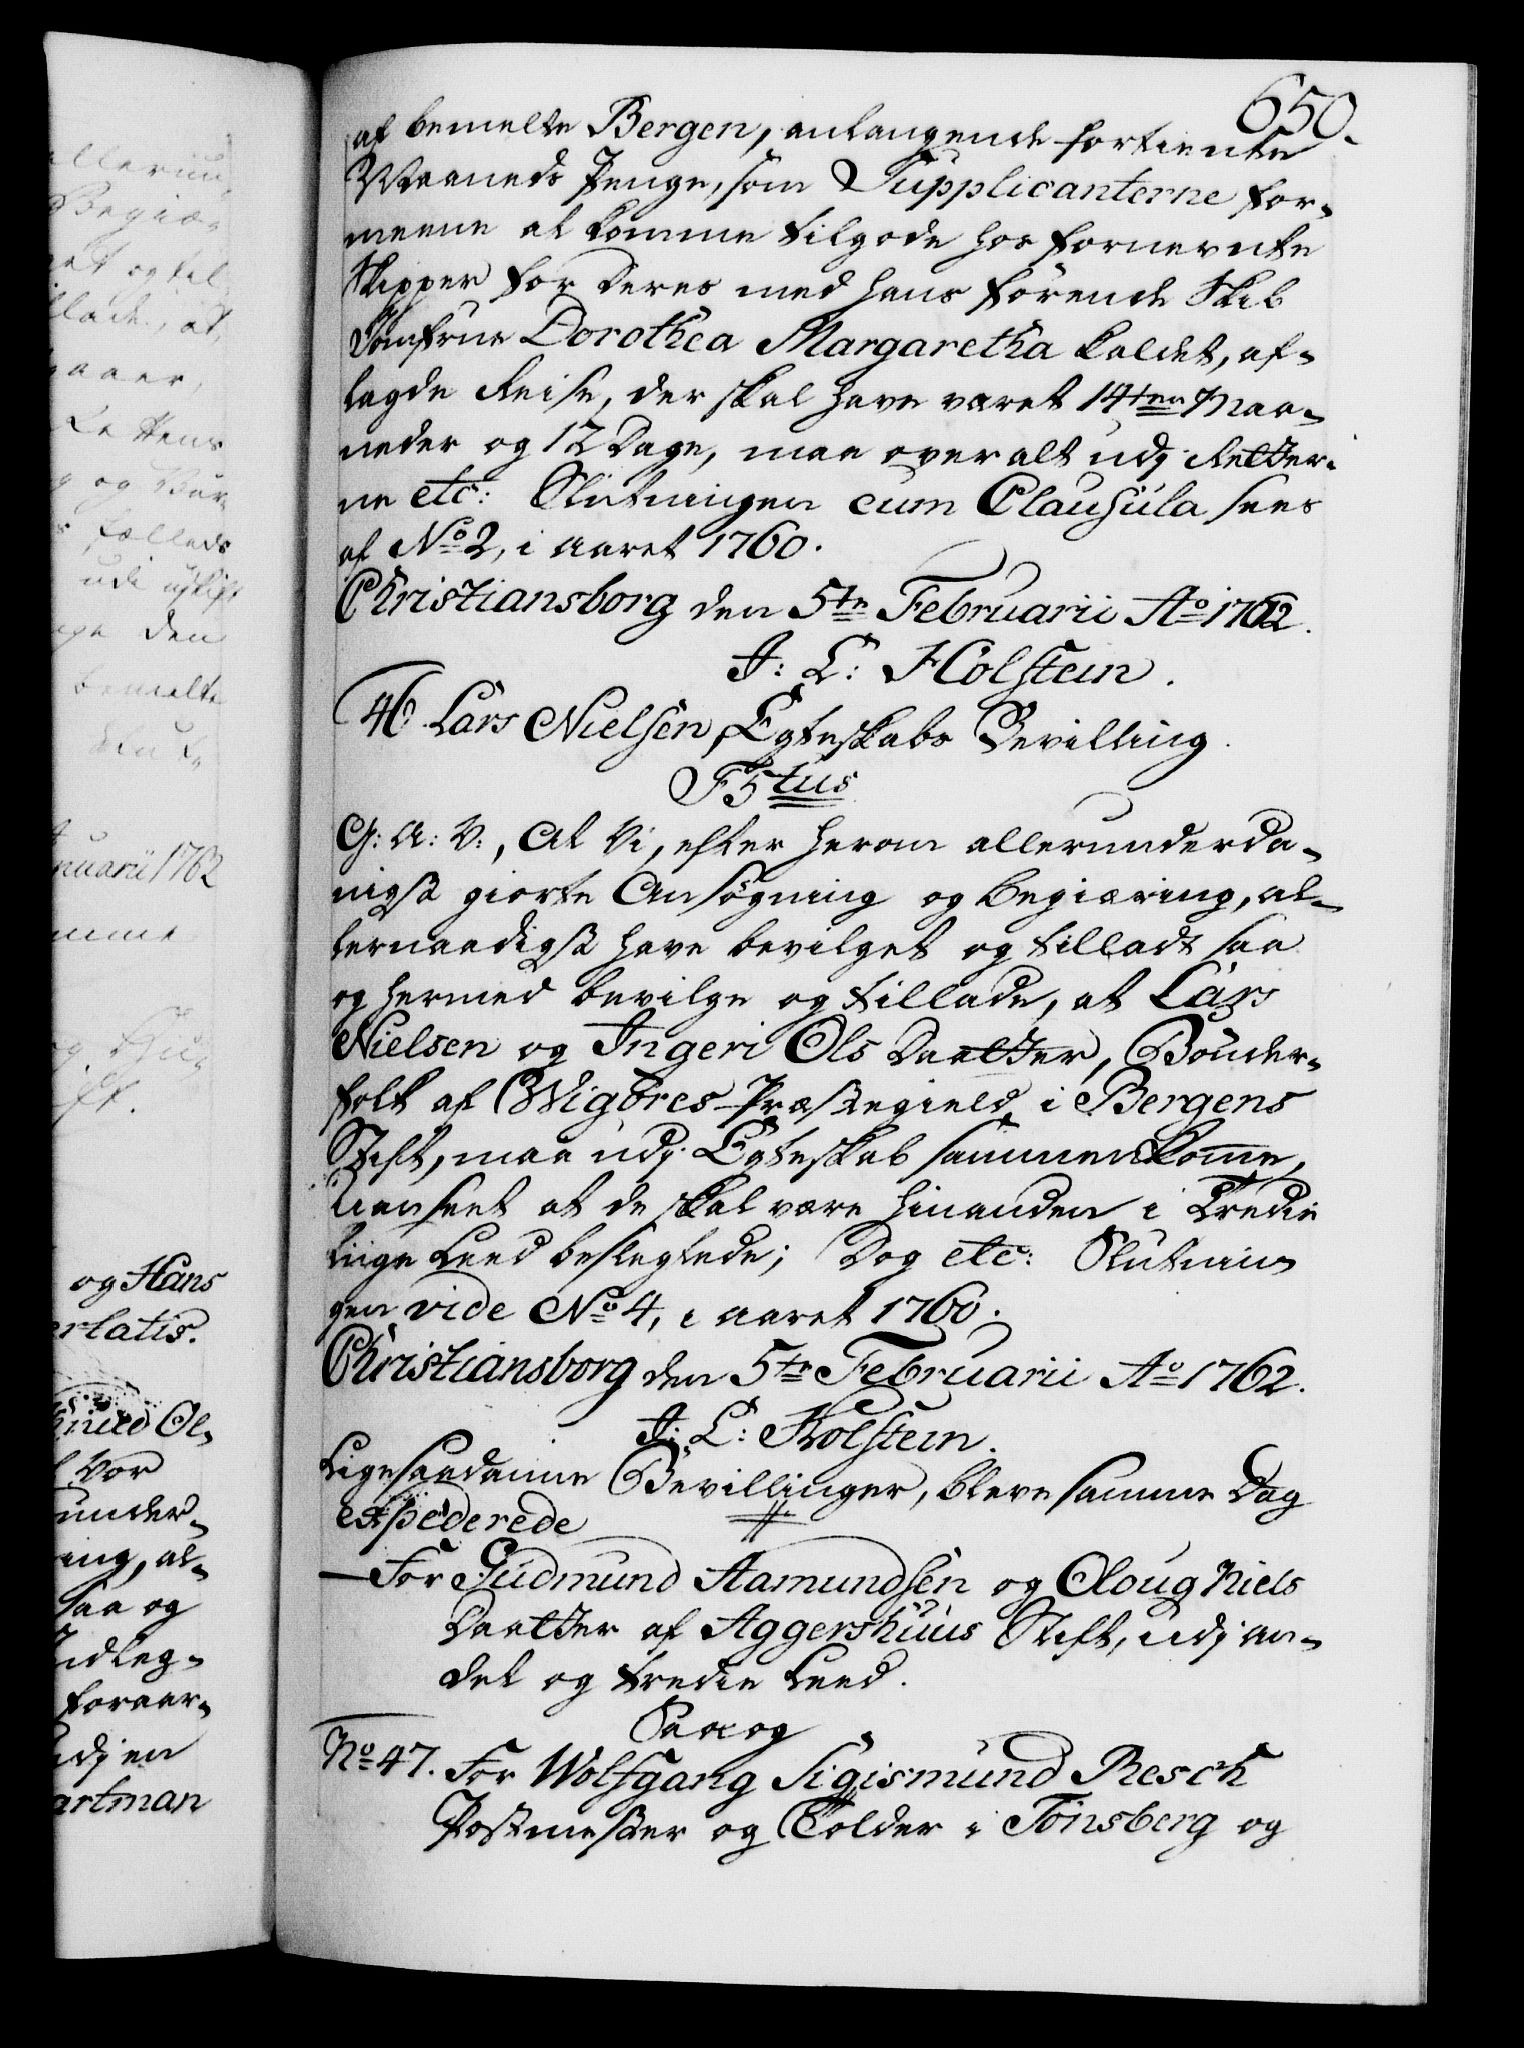 650.
af bemelte Bergen, anlangende fortiente
Maaneds Penge, som Supplicanterne for-
meene at komme tilgode hos fornevnte
Skipper for deres med hans förende Skib
Jomfrue Dorothea Margaretha kaldet, af-
lagde Reise, der skal have været 14ten Maa-
neder og 12 Dage, maa overalt udj Retter-
ne etc: Slutningen cum Clausula sees
af No 2, i Aaret 1760.
Christiansborg den 5te Februarii Ao 1762.
J: L: Holstein.
46. Lars Nielsen, Egteskabs Bevilling.
F5tus
G: A: V:, At Vi, efter herom allerunderda-
nigst giorte Ansögning og Begiæring, al-
lernaadigst have bevilget og tilladt saa
og hermed bevilge og tillade, at Lars
Nielsen og Ingeri Ols Daatter, Bönder-
folk af Wigöres Præstegield i Bergens
Stift, maa udj Egteskab sammenkomme,
Uanseet at de skal være hinanden i Tredie
liige Leed beslegtede; Dog etc: Slutnin-
gen vide No 4, i Aaret 1760.
Christiansborg den 5te Februarii Ao 1762.
J: L: Holstein.
Ligesaadanne Bevillinger, bleve samme Dag
expederede
— For Gudmund Aamundsen og Oloug Niels
Daatter af Aggershuus Stift, udj an-
det og tredie Leed.
Saa og
No 47. For Wolfgang Sigismund Resch
Postmester og Tolder i Tönsberg og
allerun-
Begiæ-
et og til
lade, at
nuarii 1762
og Hans
ertatis.
Knud Ol-
Vor
under-
ing, al-
saa og
Udleg-
foraar-
udj en
artman